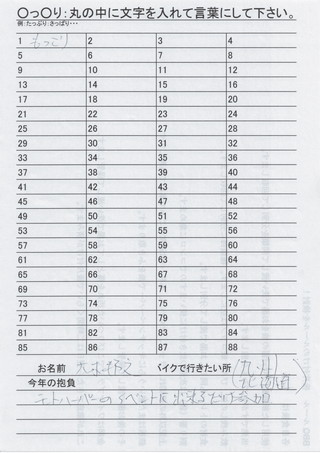 〇っ〇り:丸の中に文字を入れて言葉にして下さい。
例:たっぷり・きっぱり・・・
1 もっこり 2 3 4
5 6 7 8
9 10 11 12
13 14 15 16
17 18 19 20
21 22 23 24
25 26 27 28
29 30 31 32
33 34 35 36
37 38 39 40
41 42 43 44
45 46 47 48
49 50 51 52
53 54 55 56
57 58 59 60
61 62 63 64
65 66 67 68
69 70 71 72
73 74 75 76
77 78 79 80
81 82 83 84
85 86 87 88
お名前 バイクで行きたい所 九州
今年の抱負
のイベントに出来るだけ参加